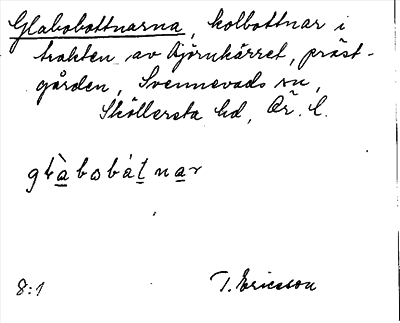 Glabobottnarna, kolbottnar i
trakten av Björnkärret, präst-
gården, Svennevads sn,
Sköllersta hd, Ör. l.
8:1
T. Ericsson